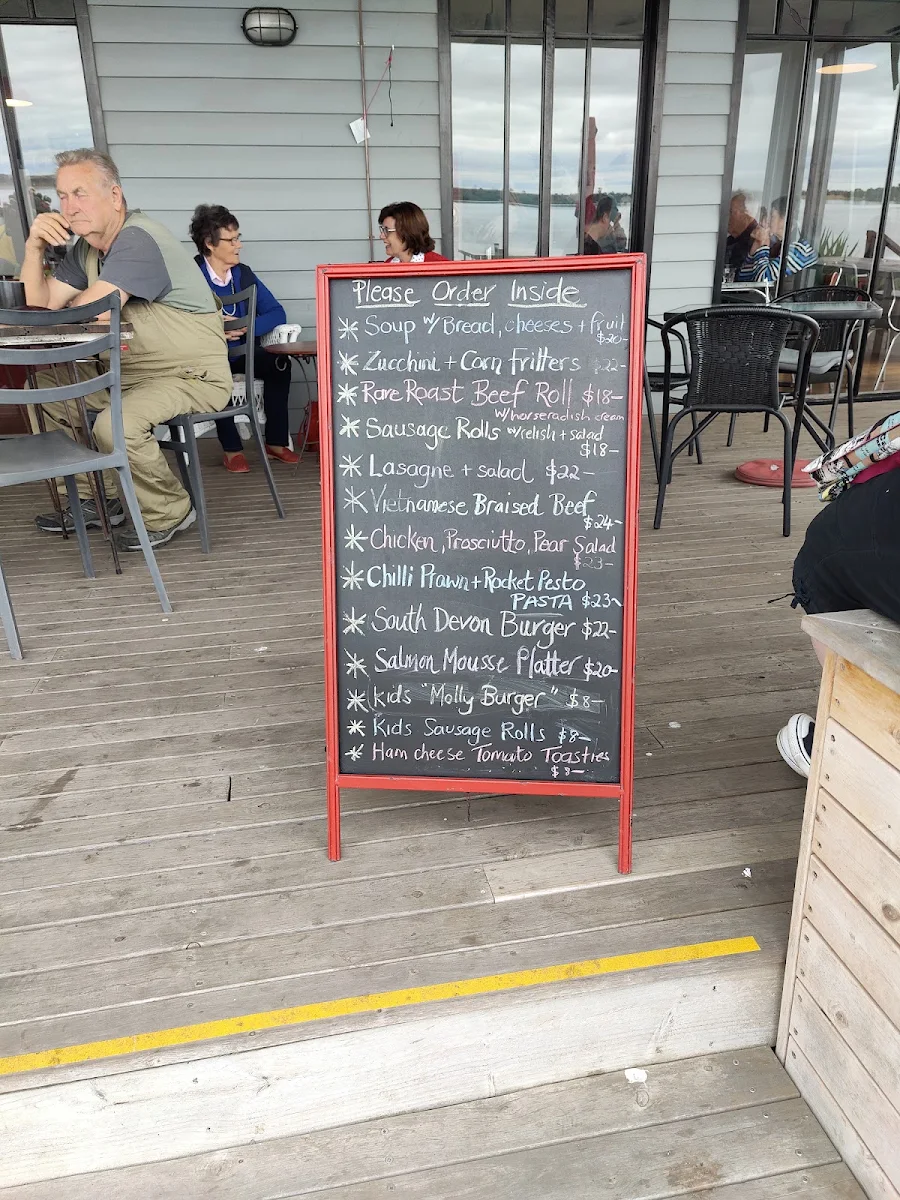 Please Order Inside
* Soup w/ Bread, cheeses + fruit
$20-
* Zucchini + Corn Fritters $22-
* Rare Roast Beef Roll $18-
w/ horseradish cream
* Sausage Rolls w/ relish + salad
$18-
* Lasagne + salad $22-
* Vietnamese Braised Beef
$24-
* Chicken, Prosciutto, Pear Salad
$23-
* Chilli Prawn + Rocket Pesto
PASTA $23-
* South Devon Burger $22-
* Salmon Mousse Platter $20-
* Kids "Molly Burger" $8-
* Kids Sausage Rolls $8-
* Ham cheese Tomato Toasties
$8-